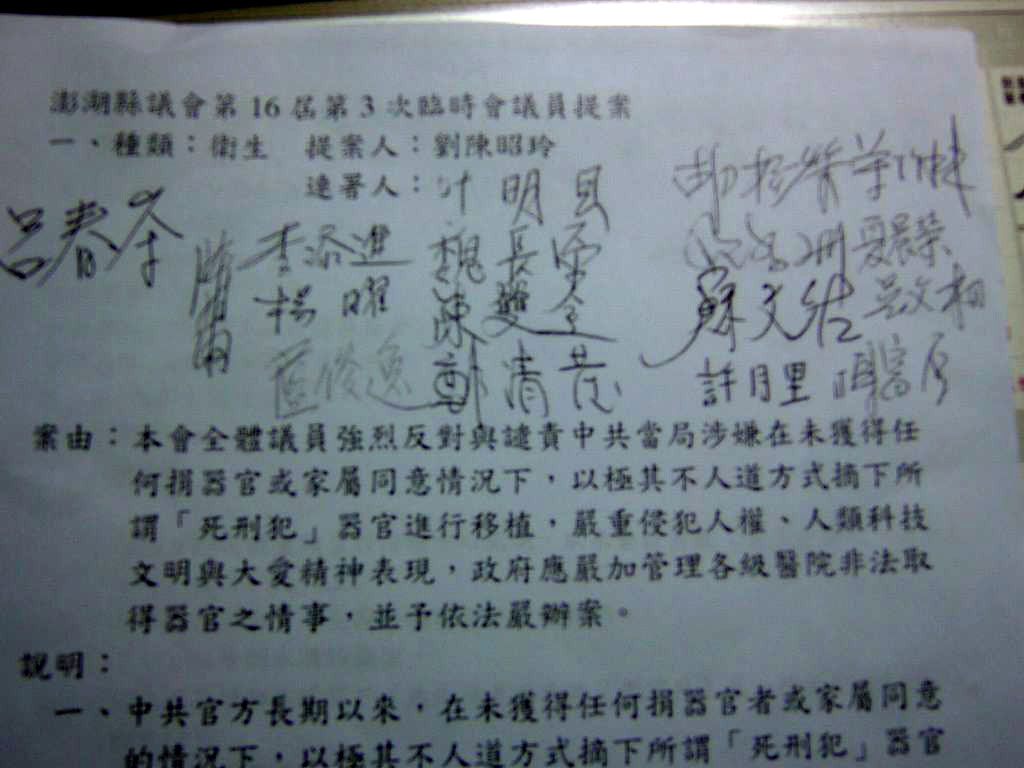 澎湖縣議會第16屆第3次臨時會議員提案
一、種類：衛生 提案人：劉陳昭玲
連署人：
呂春
李添進 魏長
楊曜 陳雙全 蘇文佐 吳文相
藍俊逸 鄭清茂 許月里
案由：本會全體議員強烈反對與譴責中共當局涉嫌在未獲得任
何捐器官或家屬同意情況下，以極其不人道方式摘下所
謂「死刑犯」器官進行移植，嚴重侵犯人權、人類科技
文明與大愛精神表現，政府應嚴加管理各級醫院非法取
得器官之情事，並予依法嚴辦案。
說明：
一、中共官方長期以來，在未獲得任何捐器官者或家屬同意
的情況下，以極其不人道方式摘下所謂「死刑犯」器官